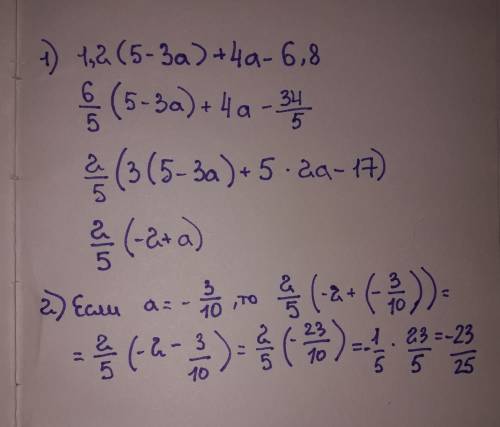 1) 1,2(5-3a)+4a-6,8
6/5 (5-3a)+4a-34/5
2/5 (3(5-3a)+5·2a-17)
2/5 (-2+a)
2) Если a=-3/10, то 2/5 (-2+(-3/10))=
=2/5 (-2-3/10)=2/5 (-23/10)=-1/5·23/5=-23/25